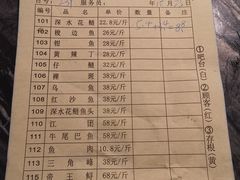 服务员:
品名 单价 数量 备注
101 深水花鲢 22.8元/斤
102 梭边鱼 26元/斤
103 钳鱼 28元/斤
104 黄辣丁 28元/斤
105 仔鲶 32元/斤
106 裸斑 38元/斤
107 乌鱼 38元/斤
108 红沙鱼 38元/斤
109 深水花鲢鱼头 38元/斤
110 江团 58元/斤
111 牛尾巴鱼 58元/斤
112 鱼肉 10.8元/斤
113 三角峰 38元/斤
115 帝王鲟 68元/斤
①吧台(白) ②顾客(红) ③存根(黄)